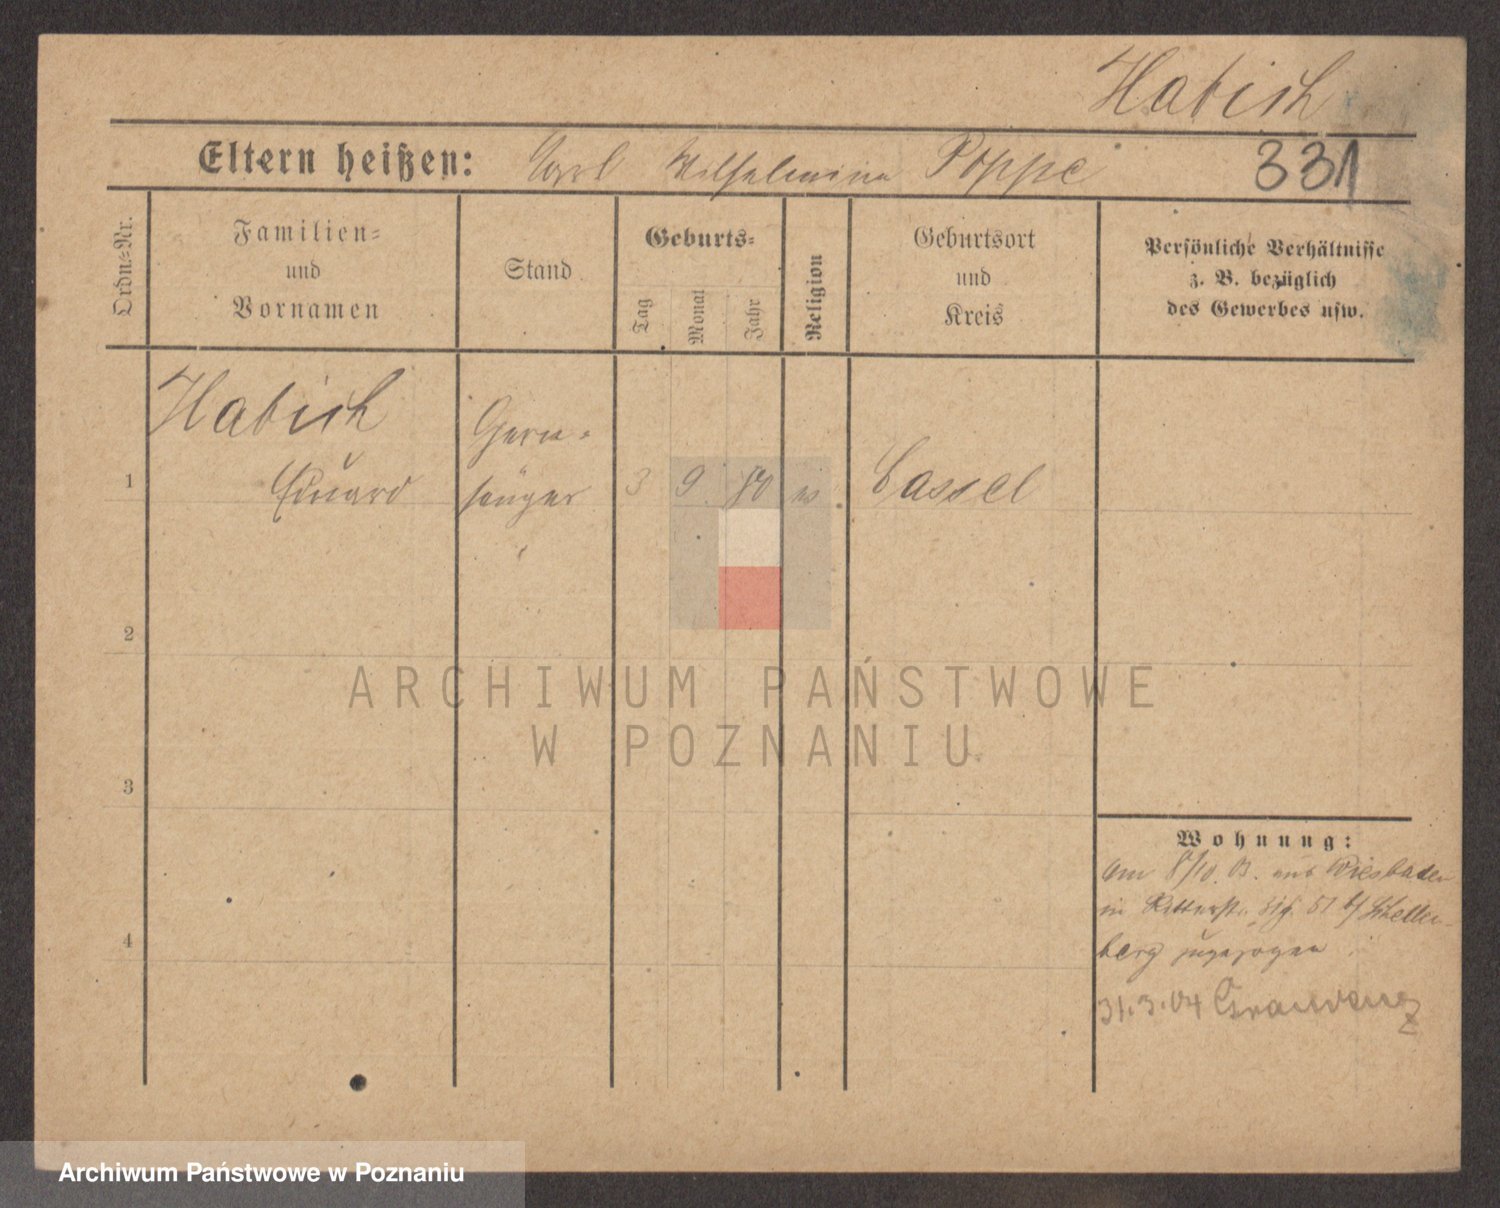 Habich
Eltern heißen: Carl Wilhelmine Poppe
331
Ordn.-Nr.
Familien-
und
Vornamen
Stand
Geburts-
Tag
Monat
Jahr
Religion
Geburtsort
und
Kreis
Persönliche Verhältnisse
z. B. bezüglich
des Gewerbes usw.
Habich
1 Eduard
sänger 3 9. 80 ev Cassel
2
3
4
Wohnung:
Am 8/10. 03. aus Wiesbaden
in Ritterstr. 51 b/ Schellen-
berg zugezogen
31.3.04 Graudenz
ARCHIWUM PAŃSTWOWE
W POZNANIU
Archiwum Państwowe w Poznaniu